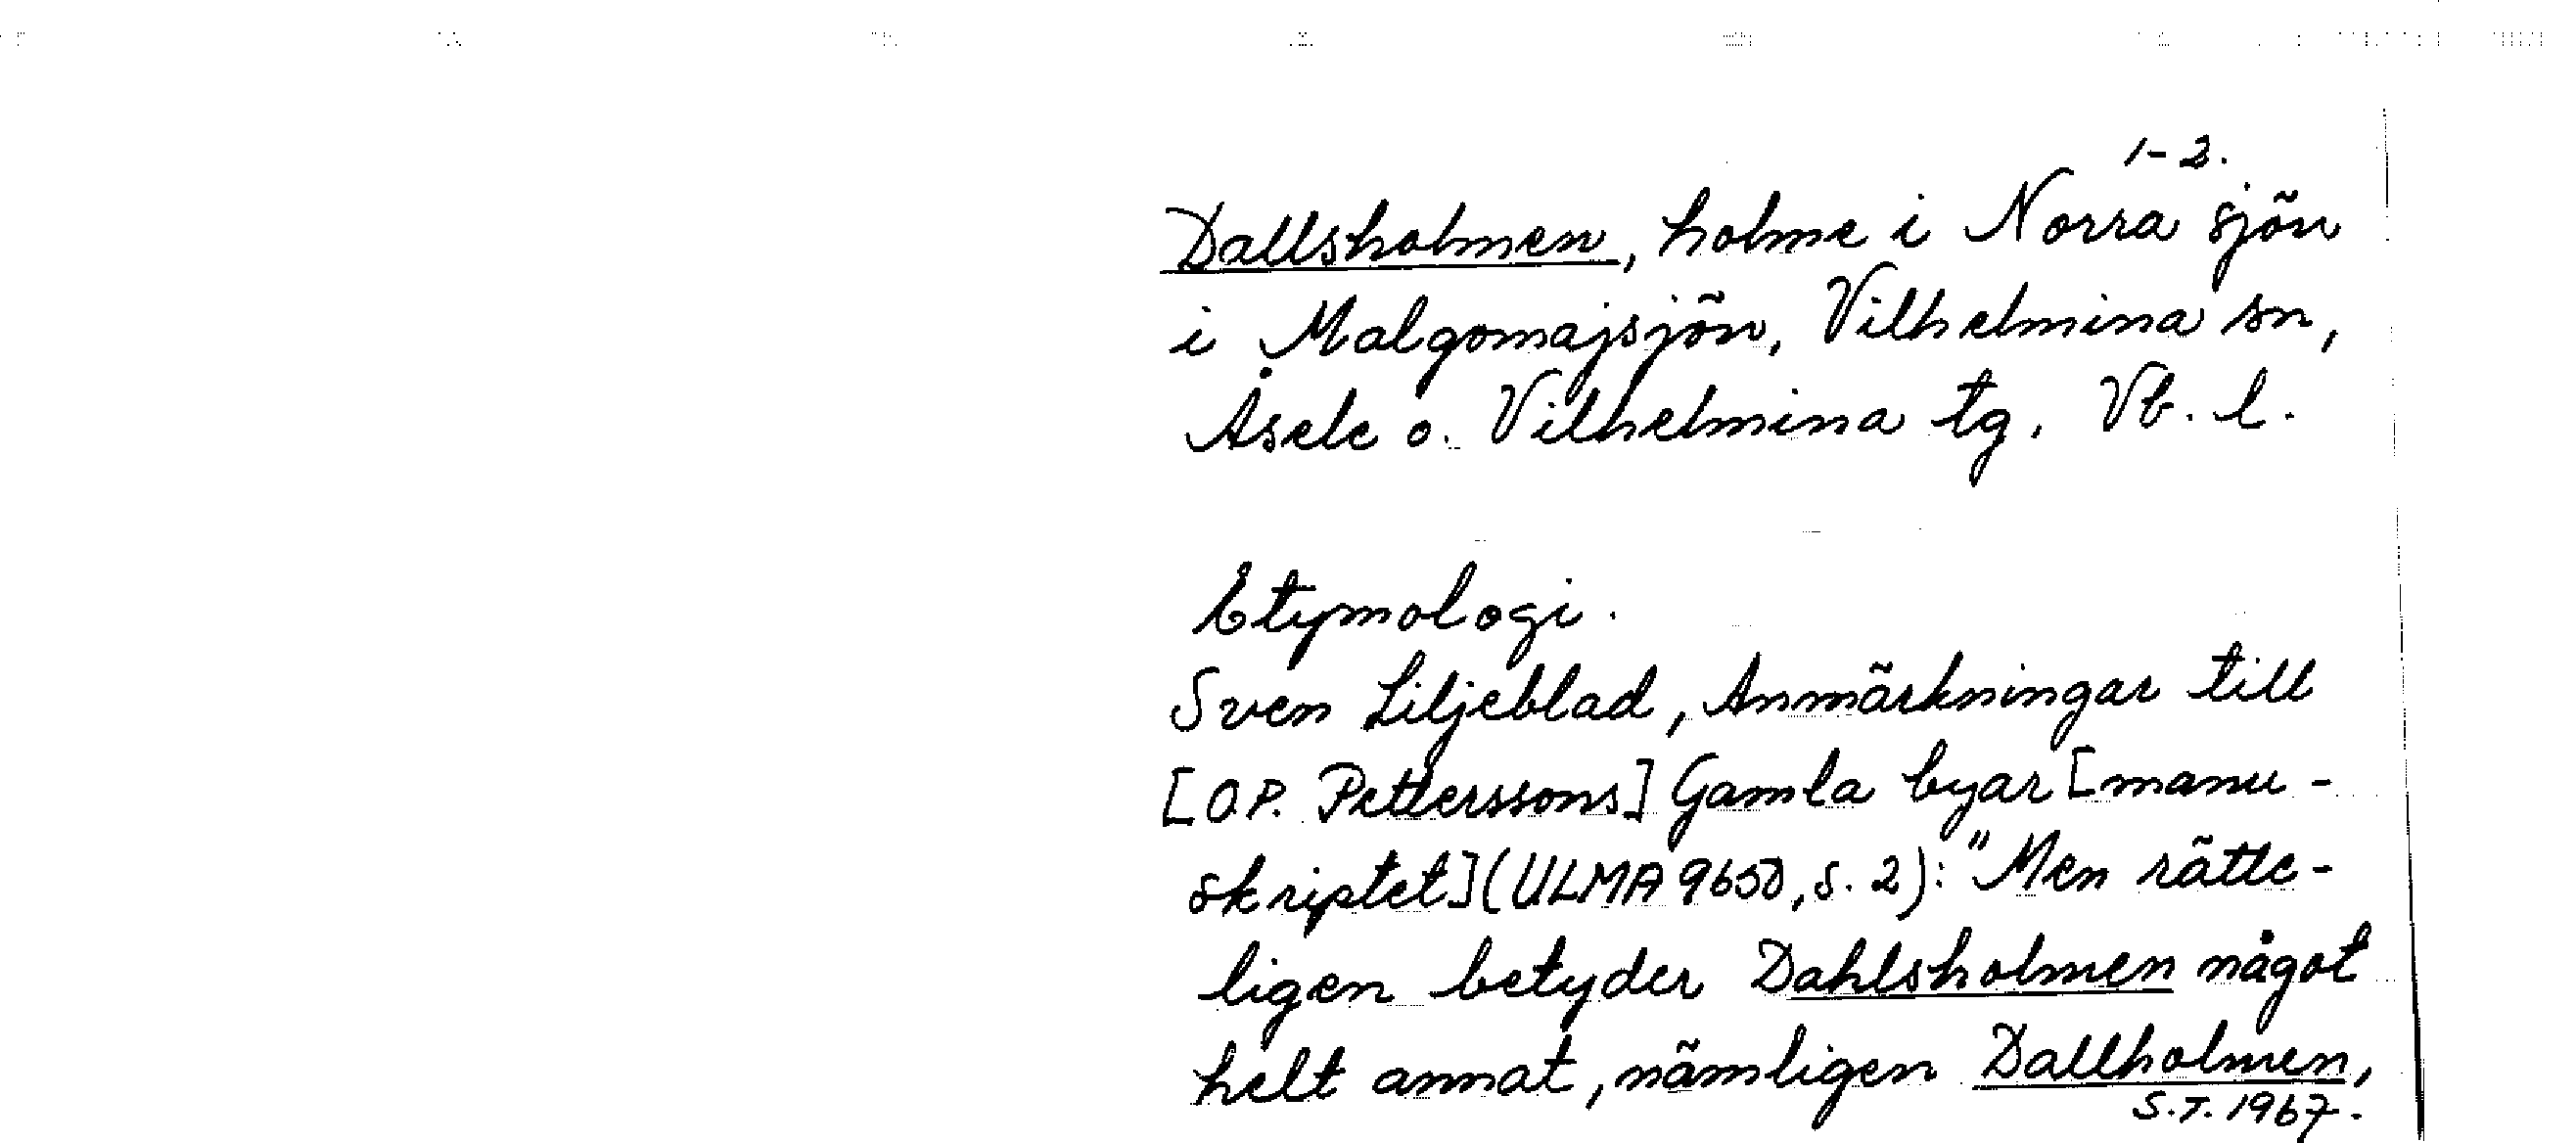 1-2.
Dallsholmen, holme i Norra sjön
i Malgomajsjön, Vilhelmina sn,
Åsele o. Vilhelmina tg, Vb. l.
Etymologi.
Sven Liljeblad, Anmärkningar till
[O.P. Petterssons] Gamla byar [manu-
skriptet] (ULMA 9650, s. 2): "Men rätte-
ligen betyder Dahlsholmen något
helt annat, nämligen Dallholmen,
S.T. 1967.